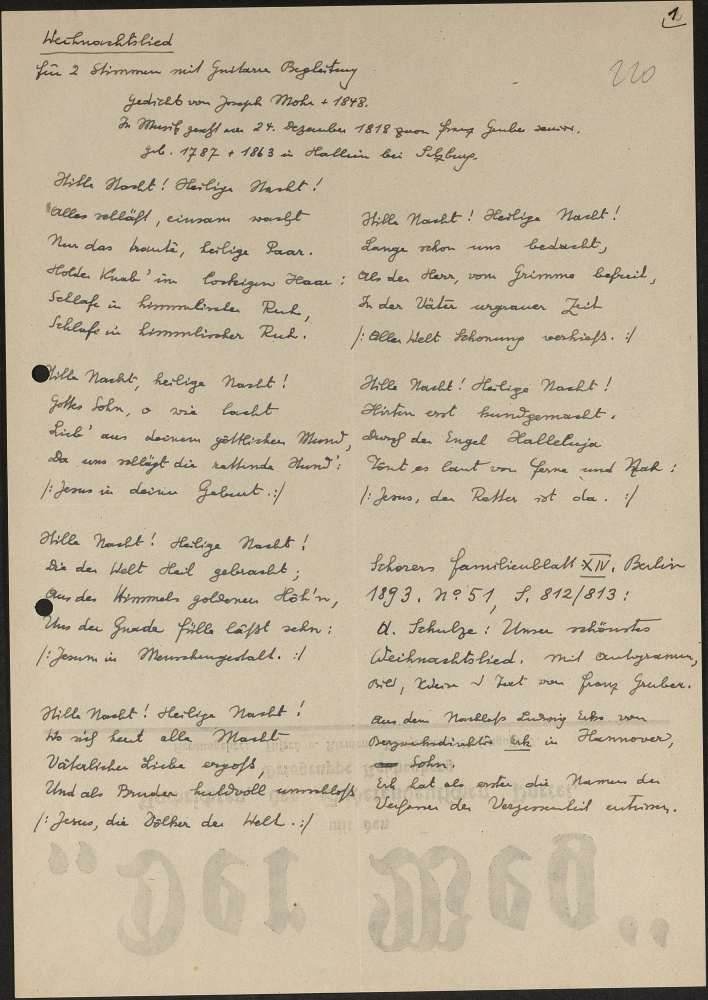 1
220
Weihnachtslied
für 2 Stimmen mit Guitarre Begleitung
Gedicht von Joseph Mohr + 1848.
In Musik gesetzt am 24. Dezember 1818 von Franz Gruber senior.
geb. 1787 + 1863 in Hallein bei Salzburg.
Stille Nacht! Heilige Nacht!
Alles schläft, einsam wacht
Nur das traute, heilige Paar.
Holder Knab' im lockigen Haar:
Schlafe in himmlischer Ruh,
Schlafe in himmlischer Ruh.
Stille Nacht, heilige Nacht!
Gottes Sohn, o wie lacht
Lieb' aus deinem göttlichen Mund,
Da uns schlägt die rettende Stund':
/: Jesus in deiner Geburt. :/
Stille Nacht! Heilige Nacht!
Die der Welt Heil gebracht;
Aus des Himmels goldenen Höh'n,
Uns der Gnade Fülle läßt sehn:
/: Jesum in Menschengestalt. :/
Stille Nacht! Heilige Nacht!
Wo sich heut alle Macht
Väterlicher Liebe ergoß,
Und als Bruder huldvoll umschloß
/: Jesus, die Völker der Welt. :/
Stille Nacht! Heilige Nacht!
Lange schon uns bedacht,
Als der Herr, vom Grimme befreit,
In der Väter urgrauer Zeit
/: Aller Welt Schonung verhieß. :/
Stille Nacht! Heilige Nacht!
Hirten erst kundgemacht.
Durch der Engel Halleluja
Tönt es laut von ferne und Nah:
/: Jesus, der Retter ist da. :/
Schorers Familienblatt XIV. Berlin
1893. No 51, S. 812/813:
A. Schulze: Unser schönstes
Weihnachtslied. mit Autogramm,
Bild, Weise u Text von Franz Gruber.
Aus dem Nachlaß Ludwig Erks von
Erk in Hannover,
Sohn.
Erk hat als erster die Namen der
Verfasser der Vergessenheit entrissen.